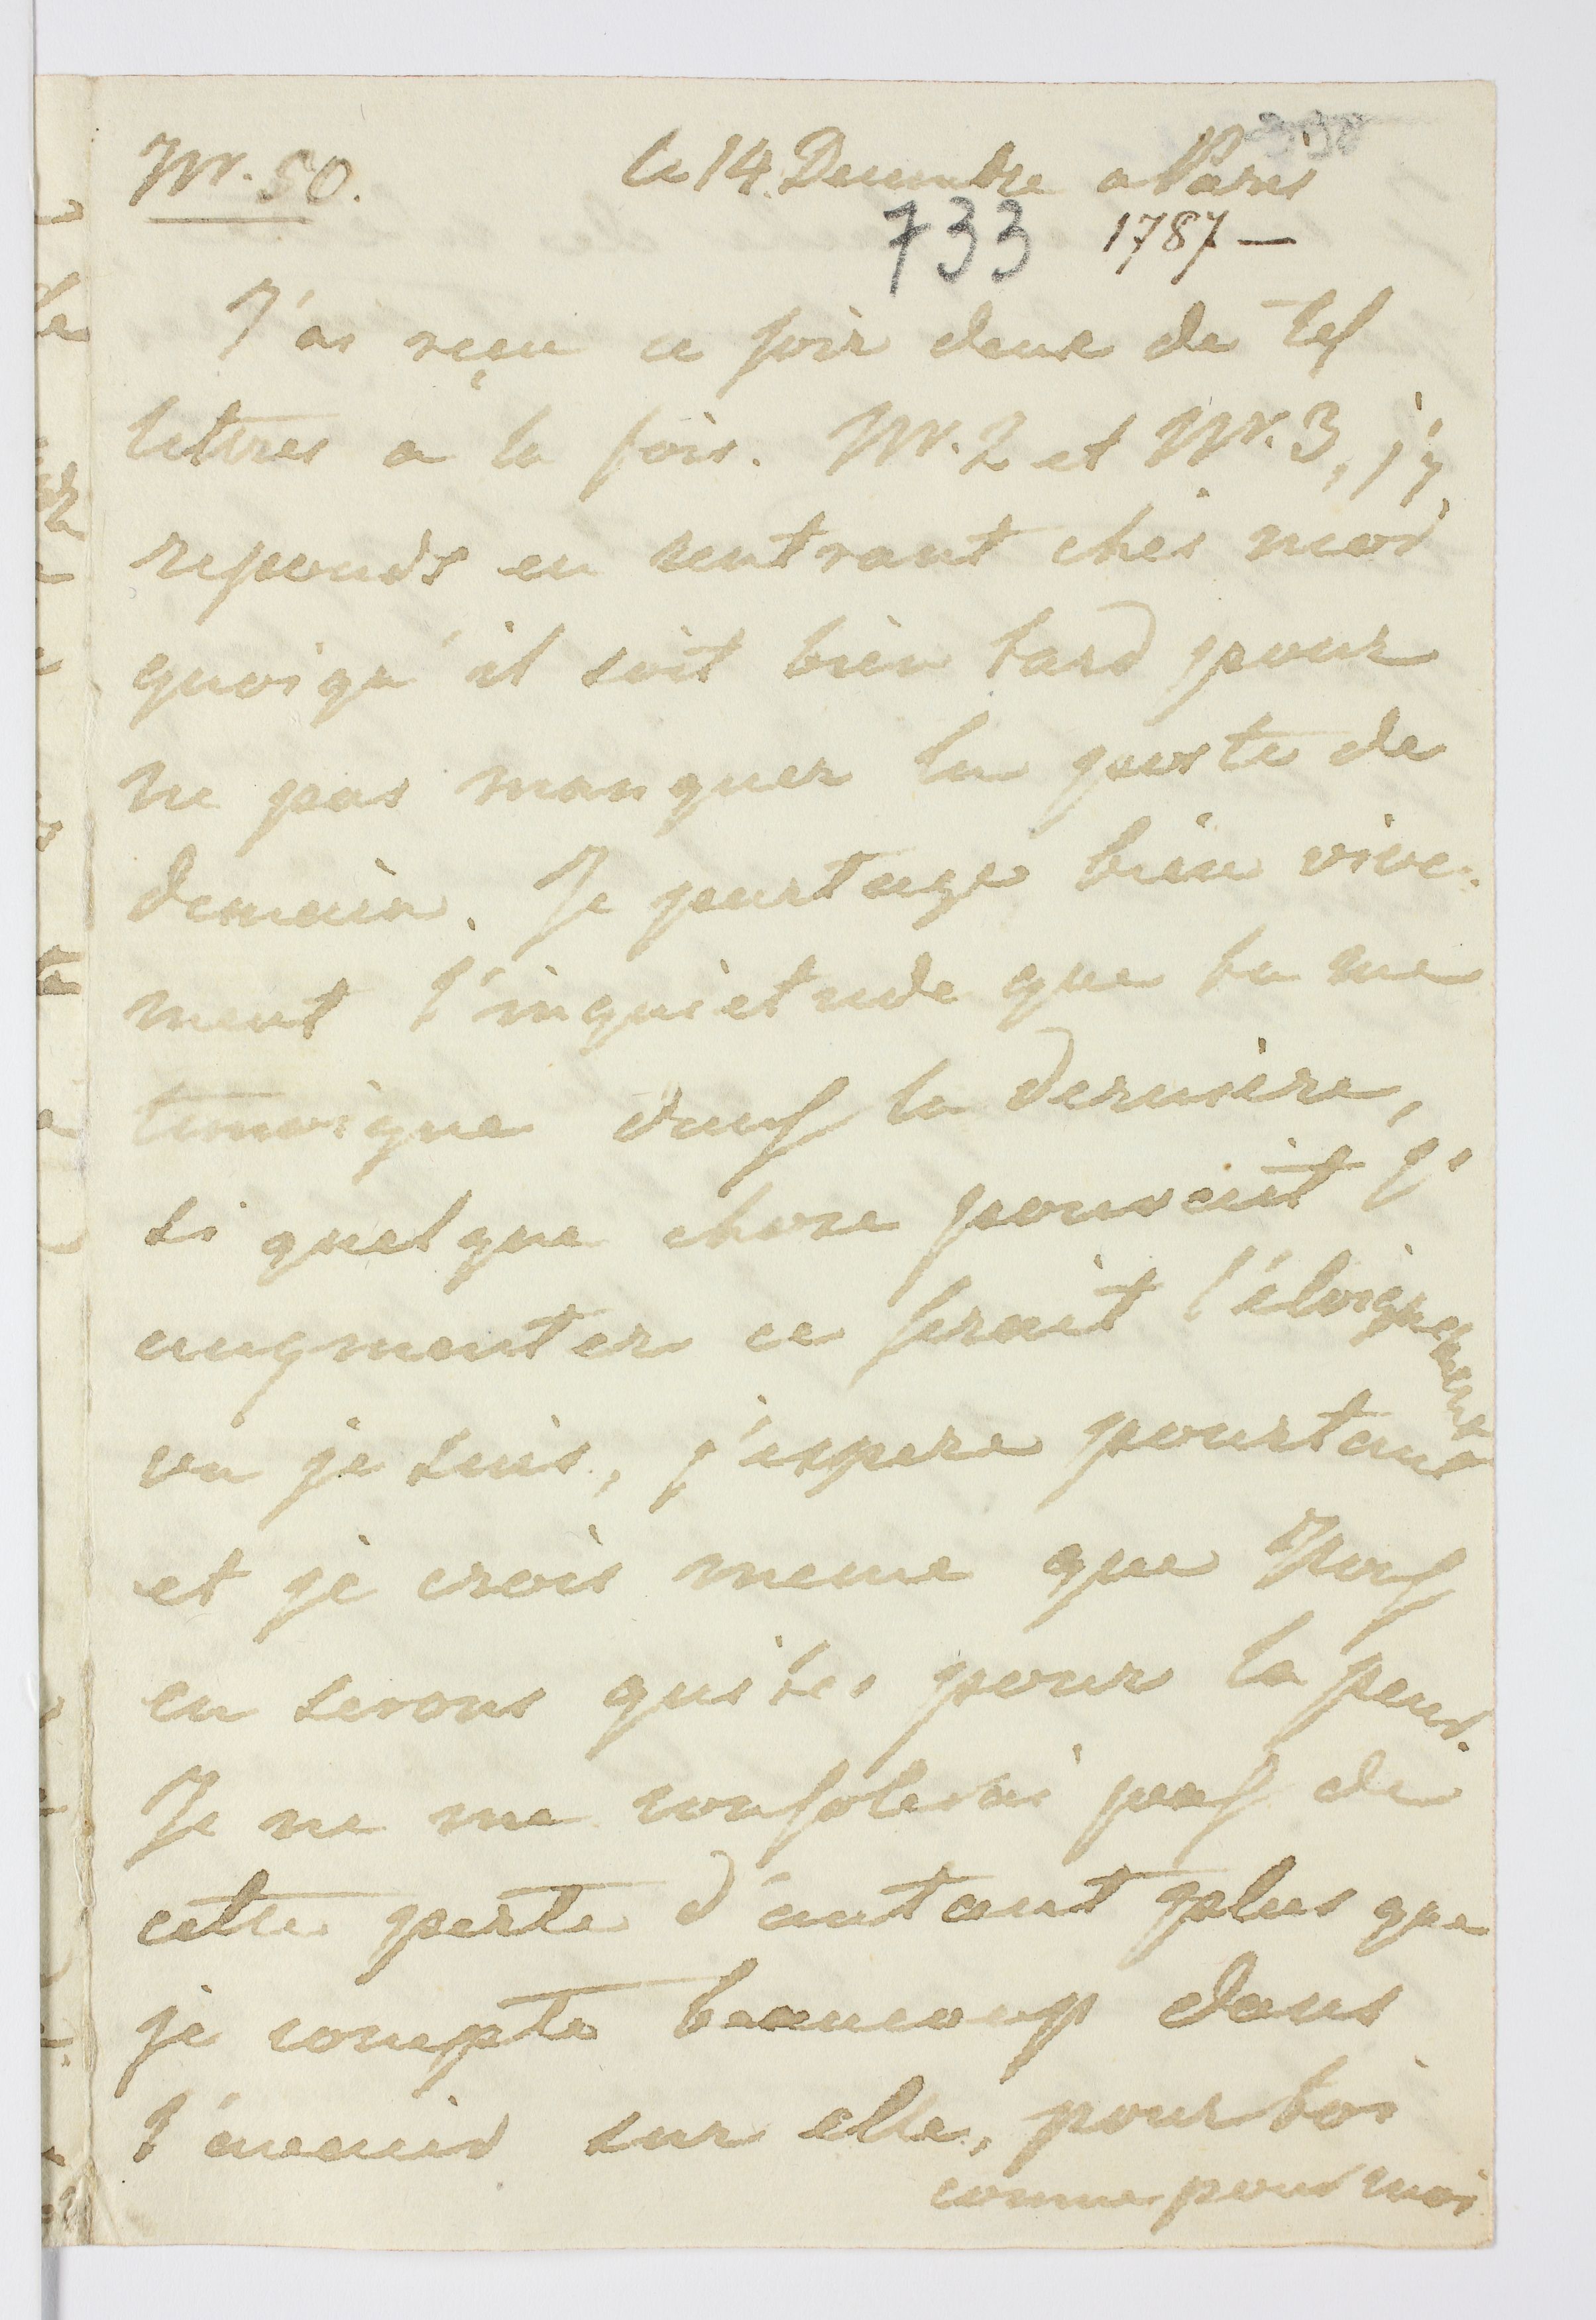 Nr. 50. le 14. Decembre a Paris
733 1787 —
J'ai reçu ce soir deux de tes
lettres a la fois. Nr. 2 et Nr. 3, j'y
reponds en rentrant ches moi
quoiqu'il soit bien tard pour
ne pas manquer la poste de
demain. Je partage bien vive-
ment l'inquietude que tu me
temoigne dans la derniere,
si quelque chose pouvait l'
augmenter ce serait l'éloignement
ou je suis, j'espere pourtant
et je crois meme que nous
en serons quites pour la peur.
Je ne me consolerai pas de
cette perte d'autant plus que
je compte beaucoup dans
l'avenir sur elle, pour toi
comme pour moi